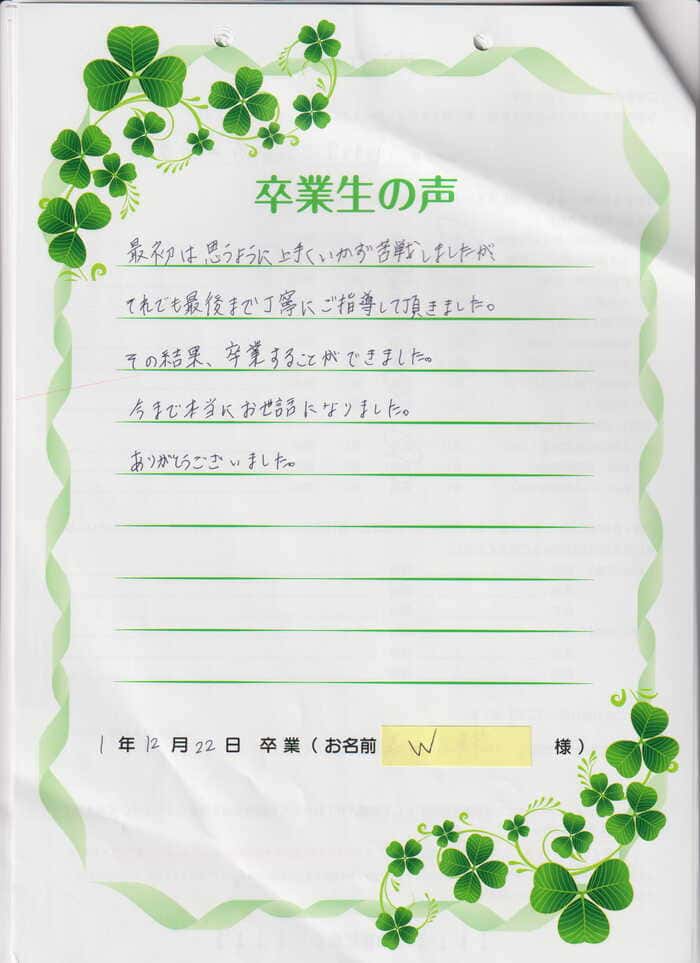 卒業生の声
最初は思うように上手くいかず苦戦しましたが
それでも最後まで丁寧にご指導して頂きました。
その結果、卒業することができました。
今まで本当にお世話になりました。
ありがとうございました。
1年12月22日 卒業(お名前 W 様)